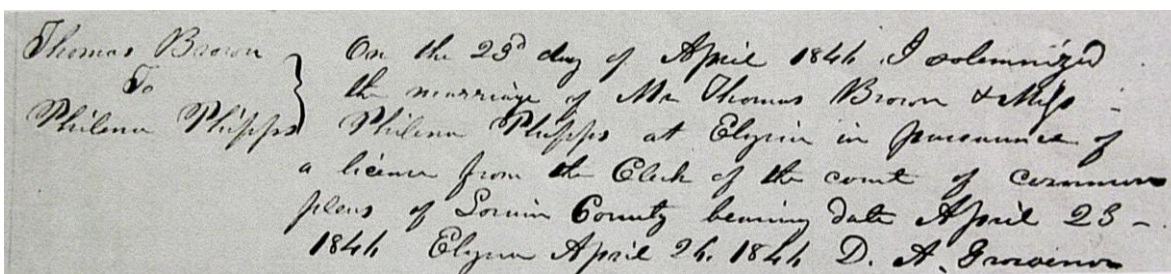 Thomas Brown
To
Philena Phipps
On the 23d day of April 1844 I solemnized
the marriage of Mr Thomas Brown & Miss
Philena Phipps at Elyria in pursuance of
a licence from the Clerk of the court of common
pleas of Lorain County bearing date April 23 –
1844 Elyria April 24. 1844 D. A. Grosvenor